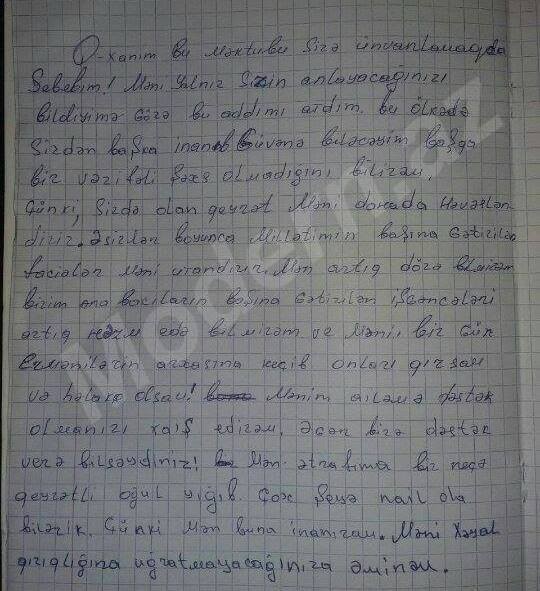 Q-xanım bu məktubu Sizə ünvanlamaqda
Səbəbim! Məni Yalnız Sizin anlayacağınızı
bildiyimə Görə bu addımı atdım. bu ölkədə
Sizdən başka inanıb Güvənə biləcəyim başqa
bir vəzifəli Şəxs olmadığını bilirəm.
Çünki, Sizdə olan qeyrət Məni dahada Həvəslən
dirir. Əsirlər boyunca Millətimin başına Gətirilən
faciələr Məni utandırır. Mən artıq dözə bilmirəm
bizim ana bacıların başına Gətirilən işgəncələri
artıq Həzm edə bilmirəm və Məni, bir Gün
Ermənilərin arxasına keçib onları qırsam
və həlak olsam! Mənim ailəmə dəstək
olmanızı xaiş edirəm. Əgər bizə dəstək
verə bilsəydiniz! Mən ətrafıma bir neçə
qeyrətli oğul yığıb. Çox Şeyə nail ola
bilərik. Çünki Mən buna inanıram. Məni Xəyal
qırıqlığına uğratmayacağınıza əminəm.
Modern.az